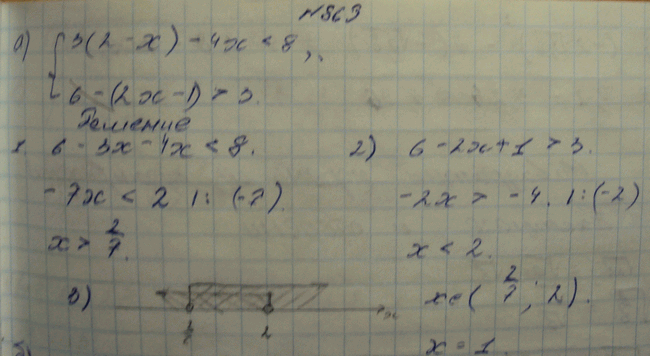 №863
а) { 3(2 - x) - 4x < 8,
6 - (2x - 1) > 3.
Решение
1. 6 - 3x - 4x < 8.
-7x < 2 | : (-7)
x > 2/7.
2) 6 - 2x + 1 > 3.
-2x > -4. | : (-2)
x < 2.
x ∈ (2/7; 2).
x = 1
3)
2
x
б)